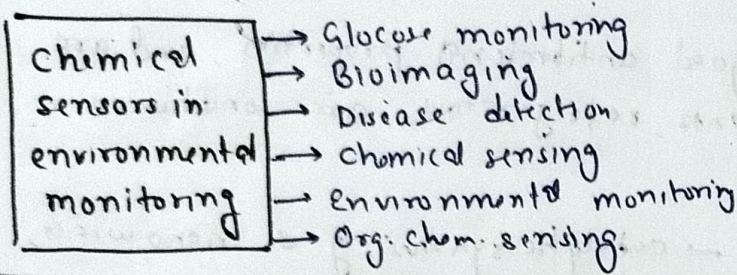 Chemical
sensors in
environmental
monitoring
→ Glocose monitoring
→ Bioimaging
→ Disease detection
→ Chemical sensing
→ environmental monitoring
→ Org. Chem. sensing.